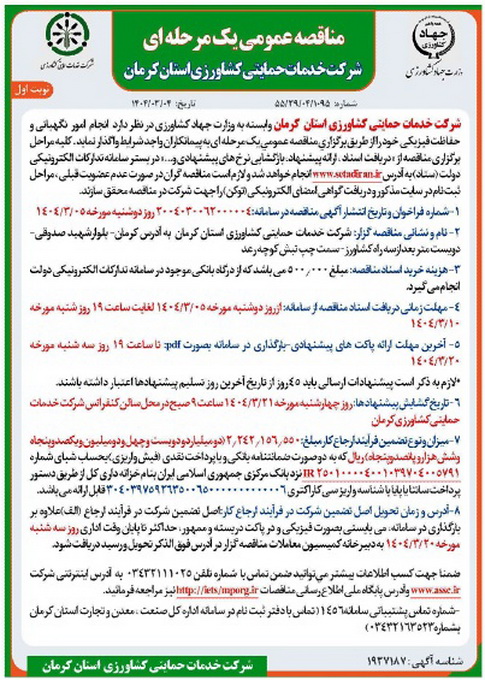 مناقصه عمومی یک مرحله ای
شرکت خدمات حمایتی کشاورزی استان کرمان
جهاد کشاورزی
وزارت جهاد کشاورزی
شرکت خدمات حمایتی کشاورزی
نوبت اول
شماره: ۵۵/۲۹/۰۴/۱۰۹۵
تاریخ: ۱۴۰۴/۰۳/۰۴
شرکت خدمات حمایتی کشاورزی استان کرمان وابسته به وزارت جهاد کشاورزی در نظر دارد انجام امور نگهبانی و
حفاظت فیزیکی خود را از طریق برگزاری مناقصه عمومی یک مرحله ای به پیمانکاران واجد شرایط واگذار نماید. کلیه مراحل
برگزاری مناقصه از «دریافت اسناد، ارائه پیشنهاد، بازگشایی نرخ های پیشنهادی و...» در بستر سامانه تدارکات الکترونیکی
دولت (ستاد) به آدرس www.setadiran.ir انجام خواهد شد و لازم است مناقصه گران در صورت عدم عضویت قبلی، مراحل
ثبت نام در سایت مذکور و دریافت گواهی امضای الکترونیکی (توکن) را جهت شرکت در مناقصه محقق سازند.
۱-شماره فراخوان و تاریخ انتشار آگهی مناقصه در سامانه: ۲۰۰۴۰۳۰۰۶۲۰۰۰۰۰۴ روز دوشنبه مورخه ۱۴۰۴/۳/۰۵
۲- نام و نشانی مناقصه گزار: شرکت خدمات حمایتی کشاورزی استان کرمان به آدرس کرمان- بلوار شهید صدوقی-
دویست متر بعد از سه راه کشاورز- سمت چپ نبش کوچه رعد
۳-هزینه خرید اسناد مناقصه: مبلغ ۵۰۰/۰۰۰ می باشد که از درگاه بانکی موجود در سامانه تدارکات الکترونیکی دولت
انجام می گیرد.
۴- مهلت زمانی دریافت اسناد مناقصه از سامانه: از روز دوشنبه مورخه ۱۴۰۴/۳/۰۵ لغایت ساعت ۱۹ روز شنبه مورخه
۱۴۰۴/۳/۱۰
۵- آخرین مهلت ارائه پاکت های پیشنهادی-بارگذاری در سامانه بصورت pdf: تا ساعت ۱۹ روز سه شنبه مورخه
۱۴۰۴/۳/۲۰
*لازم به ذکر است پیشنهادات ارسالی باید ۴۵ روز از تاریخ آخرین روز تسلیم پیشنهادها اعتبار داشته باشند.
۶-تاریخ گشایش پیشنهادها: روز چهارشنبه مورخه ۱۴۰۴/۳/۲۱ ساعت ۹ صبح در محل سالن کنفرانس شرکت خدمات
حمایتی کشاورزی استان کرمان
۷-میزان و نوع تضمین فرآیند ارجاع کار مبلغ: ۲,۲۴۲,۱۵۶,۵۵۰ (دو میلیارد و دویست و چهل و دو میلیون و یکصد و پنجاه
وشش هزار و پانصد و پنجاه) ریال که به دو صورت ضمانتنامه بانکی و یا پرداخت نقدی (فیش واریزی) بحساب شبای شماره
IR۲۵۰۱۰۰۰۰۴۰۰۱۰۳۹۷۰۴۰۰۵۷۹۱ نزد بانک مرکزی جمهوری اسلامی ایران بنام خزانه داری کل از طریق دستور
پرداخت ساتنا یا پایا با شناسه واریز سی کاراکتری قابل ارائه می باشد.
۸-آدرس و زمان تحویل اصل تضمین شرکت در فرآیند ارجاع کار: اصل تضمین شرکت در فرآیند ارجاع (الف) علاوه بر
بارگذاری در سامانه، می بایستی بصورت فیزیکی و در پاکت دربسته و ممهور، حداکثر تا پایان وقت اداری روز سه شنبه
مورخه ۱۴۰۴/۳/۲۰ به دبیرخانه کمیسیون معاملات مناقصه گزار در آدرس فوق الذکر تحویل و رسید دریافت شود.
ضمنا جهت کسب اطلاعات بیشتر می توانید ضمن تماس با شماره تلفن ۰۳۴۳۲۱۱۱۰۲۵ به آدرس اینترنتی شرکت
www.assc.ir و آدرس پایگاه ملی اطلاع رسانی مناقصات http://iets/mporg.ir نیز مراجعه فرمائید.
-شماره تماس پشتیبانی سامانه ۱۴۵۶ (تماس با دفتر ثبت نام در سامانه اداره کل صنعت، معدن و تجارت استان کرمان
بشماره ۰۳۴۳۲۱۶۳۵۲۳)
شناسه آگهی: ۱۹۲۷۱۸۷
شرکت خدمات حمایتی کشاورزی استان کرمان